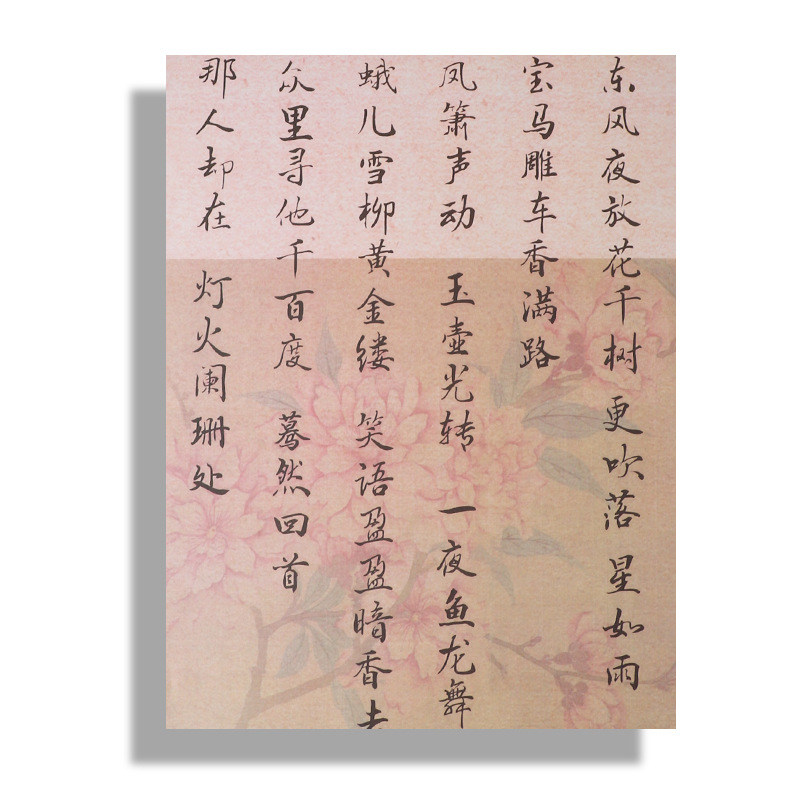 东风夜放花千树 更吹落 星如雨
宝马雕车香满路
凤箫声动 玉壶光转 一夜鱼龙舞
蛾儿雪柳黄金缕 笑语盈盈暗香去
众里寻他千百度 蓦然回首
那人却在 灯火阑珊处